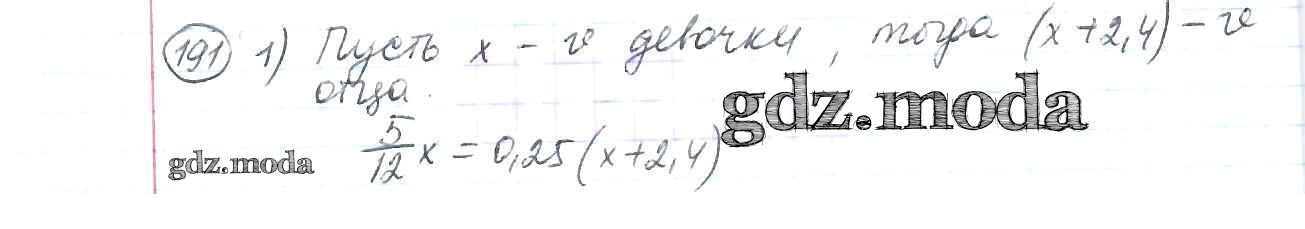 191 1) Пусть x - v девочки, тогда (x+2,4) - v
отца.
gdz.moda
5/12 x = 0,25 (x+2,4)
gdz.moda